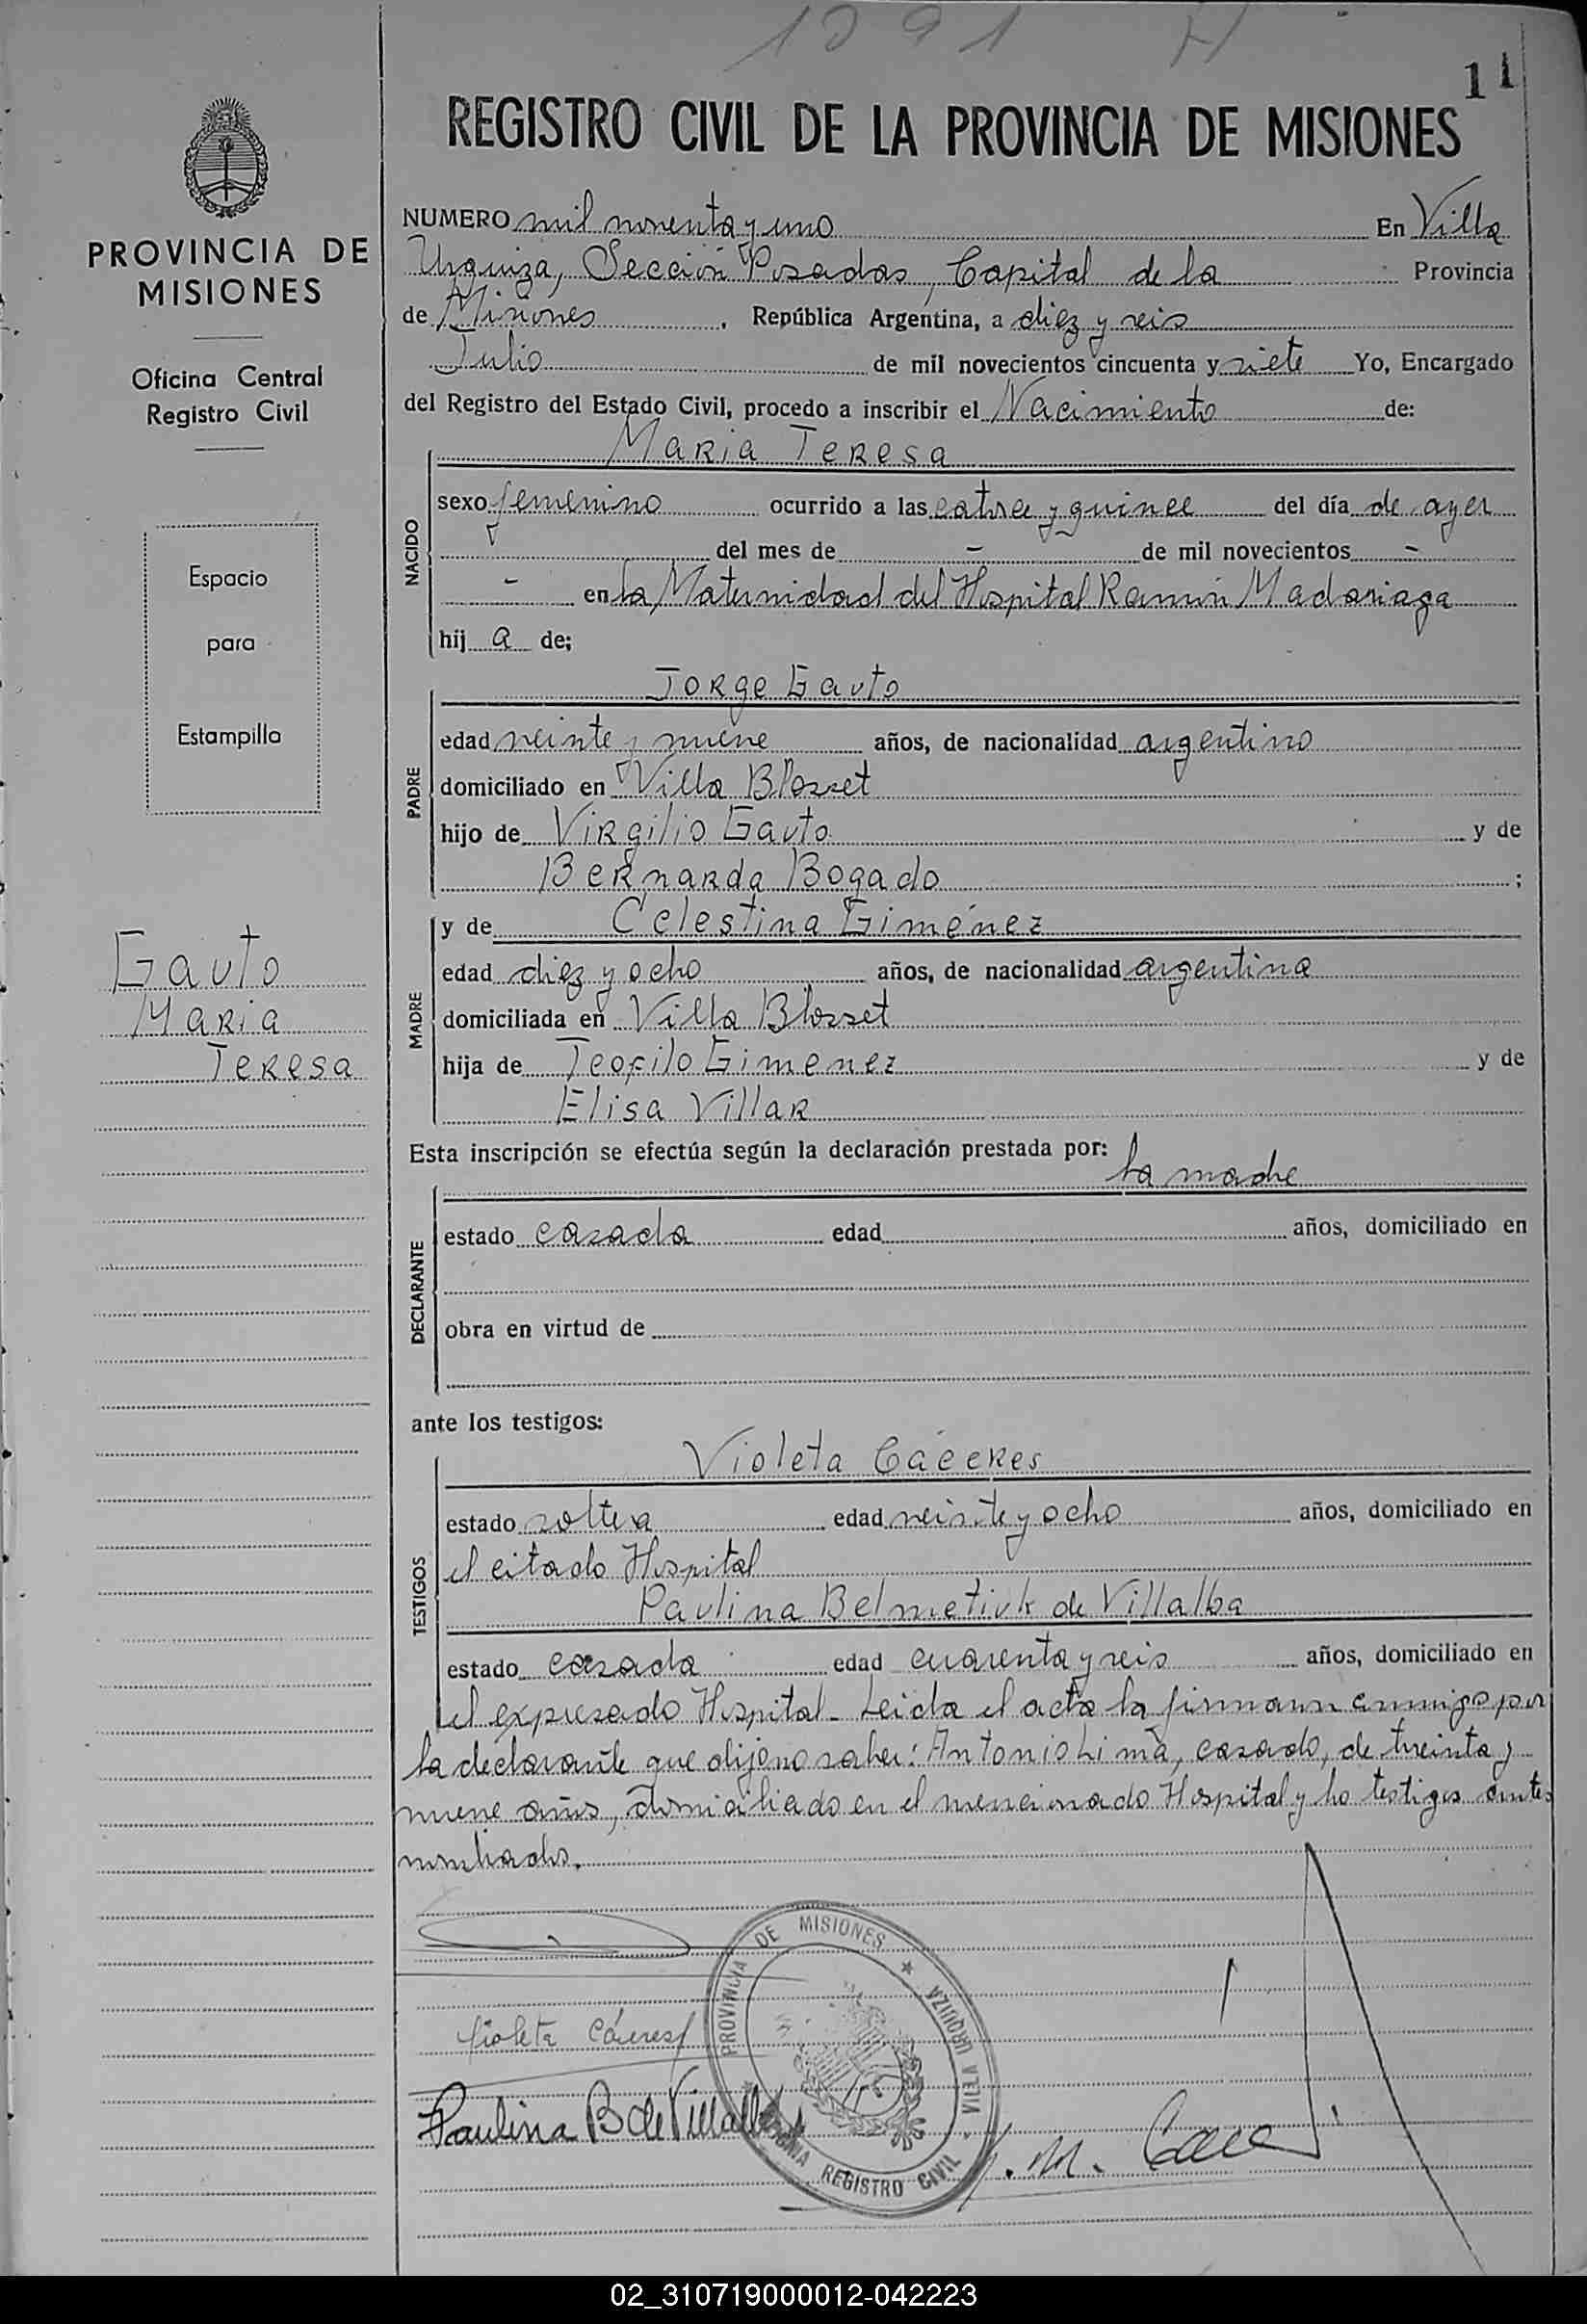 1091
11
REGISTRO CIVIL DE LA PROVINCIA DE MISIONES
PROVINCIA DE
MISIONES
Oficina Central
Registro Civil
Espacio
para
Estampilla
Gauto
Maria
Teresa
NUMERO mil noventa y uno En Villa
Urquiza, Sección Posadas, Capital de la Provincia
de Misiones, República Argentina, a diez y seis
Julio de mil novecientos cincuenta y siete Yo, Encargado
del Registro del Estado Civil, procedo a inscribir el Nacimiento de:
NACIDO
Maria Teresa
sexo femenino ocurrido a las catorce y quince del día de ayer
del mes de - de mil novecientos -
- en la Maternidad del Hospital Ramón Madariaga
hij a de;
PADRE
Jorge Gauto
edad veinte y nueve años, de nacionalidad argentino
domiciliado en Villa Blosset
hijo de Virgilio Gauto y de
Bernarda Bogado ;
MADRE
y de Celestina Giménez
edad diez y ocho años, de nacionalidad argentina
domiciliada en Villa Blosset
hija de Teofilo Gimenez y de
Elisa Villar
Esta inscripción se efectúa según la declaración prestada por: la madre
DECLARANTE
estado casada edad años, domiciliado en
obra en virtud de
ante los testigos:
TESTIGOS
Violeta Cáceres
estado soltera edad veinte y ocho años, domiciliado en
el citado Hospital
Paulina Belmetiuk de Villalba
estado casada edad cuarenta y seis años, domiciliado en
el expresado Hospital. Leida el acta la firmann conmigo por
la declarante que dijo no saber: Antonio Lima, casado, de treinta y
nueve años, domiciliado en el mencionado Hospital y los testigos antes
nombrados.
PROVINCIA DE MISIONES ★ VILLA URQUIZA
REGISTRO CIVIL
Violeta Cáceres
Paulina B de Villalba
02_310719000012-042223